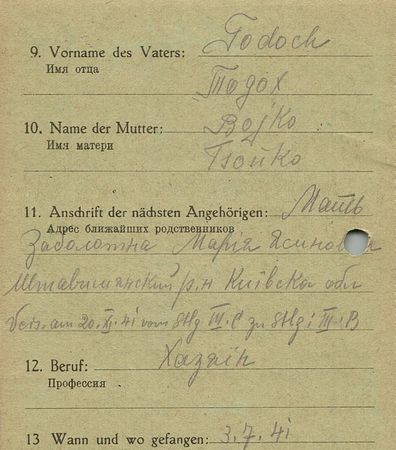 9. Vorname des Vaters: Todoch
Имя отца
Тодох
10. Name der Mutter: Bojko
Имя матери
Бойко
11. Anschrift der nächsten Angehörigen: Мать
Адрес ближайших родственников
Заболотна Марія
р-н Київска обл
vers. am 20.XI.41 vom Stlg III C zu Stlg III B
12. Beruf: Хазяїн
Профессия
13 Wann und wo gefangen: 3.7.41